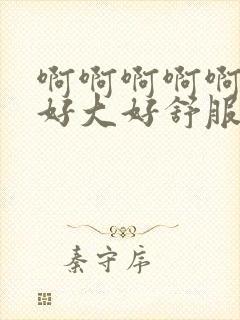 啊啊啊啊啊
好大好舒服
秦守序